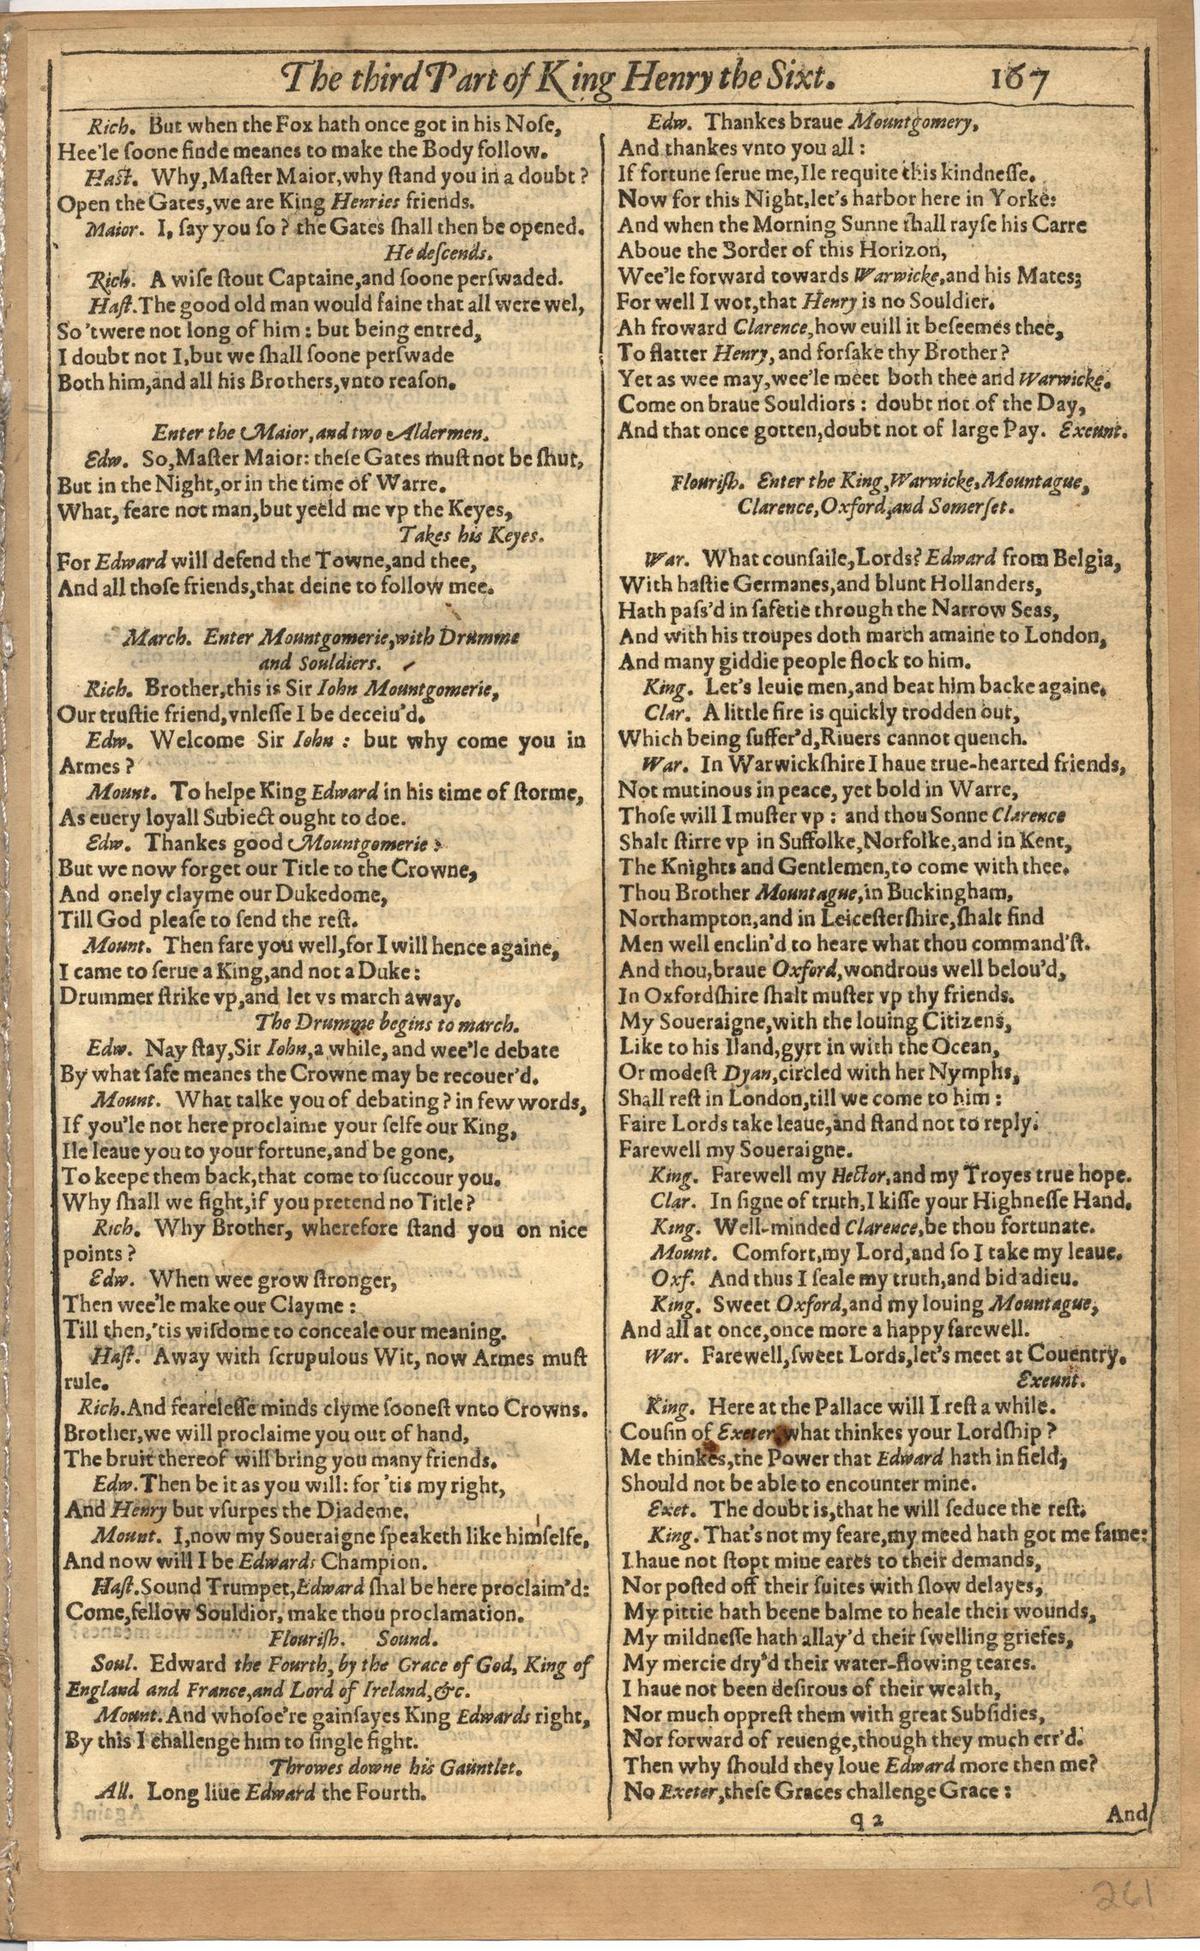 The third Part of King Henry the Sixt. 167
Rich. But when the Fox hath once got in his Nose,
Hee'le soone finde meanes to make the Body follow.
Hast. Why, Master Maior, why stand you in a doubt?
Open the Gates, we are King Henries friends.
Maior. I, say you so? the Gates shall then be opened.
He descends.
Rich. A wise stout Captaine, and soone perswaded.
Hast. The good old man would faine that all were wel,
So 'twere not long of him: but being entred,
I doubt not I, but we shall soone perswade
Both him, and all his Brothers, vnto reason.
Enter the Maior, and two Aldermen.
Edw. So, Master Maior: these Gates must not be shut,
But in the Night, or in the time of Warre.
What, feare not man, but yeeld me vp the Keyes,
Takes his Keyes.
For Edward will defend the Towne, and thee,
And all those friends, that deine to follow mee.
March. Enter Mountgomerie, with Drumme
and Souldiers.
Rich. Brother, this is Sir Iohn Mountgomerie,
Our trustie friend, vnlesse I be deceiu'd.
Edw. Welcome Sir Iohn: but why come you in
Armes?
Mount. To helpe King Edward in his time of storme,
As euery loyall Subiect ought to doe.
Edw. Thankes good Mountgomerie:
But we now forget our Title to the Crowne,
And onely clayme our Dukedome,
Till God please to send the rest.
Mount. Then fare you well, for I will hence againe,
I came to serue a King, and not a Duke:
Drummer strike vp, and let vs march away.
The Drumme begins to march.
Edw. Nay stay, Sir Iohn, a while, and wee'le debate
By what safe meanes the Crowne may be recouer'd.
Mount. What talke you of debating? in few words,
If you'le not here proclaime your selfe our King,
Ile leaue you to your fortune, and be gone,
To keepe them back, that come to succour you.
Why shall we fight, if you pretend no Title?
Rich. Why Brother, wherefore stand you on nice
points?
Edw. When wee grow stronger,
Then wee'le make our Clayme:
Till then, 'tis wisdome to conceale our meaning.
Hast. Away with scrupulous Wit, now Armes must
rule.
Rich. And fearelesse minds clyme soonest vnto Crowns.
Brother, we will proclaime you out of hand,
The bruit thereof will bring you many friends.
Edw. Then be it as you will: for 'tis my right,
And Henry but vsurpes the Diademe.
Mount. I, now my Soueraigne speaketh like himselfe,
And now will I be Edwards Champion.
Hast. Sound Trumpet, Edward shal be here proclaim'd:
Come, fellow Souldior, make thou proclamation.
Flourish. Sound.
Soul. Edward the Fourth, by the Grace of God, King of
England and France, and Lord of Ireland, &c.
Mount. And whosoe're gainsayes King Edwards right,
By this I challenge him to single fight.
Throwes downe his Gauntlet.
All. Long liue Edward the Fourth.
Edw. Thankes braue Mountgomery,
And thankes vnto you all:
If fortune serue me, Ile requite this kindnesse.
Now for this Night, let's harbor here in Yorke:
And when the Morning Sunne shall rayse his Carre
Aboue the Border of this Horizon,
Wee'le forward towards Warwicke, and his Mates;
For well I wot, that Henry is no Souldier.
Ah froward Clarence, how euill it beseemes thee,
To flatter Henry, and forsake thy Brother?
Yet as wee may, wee'le meet both thee and Warwicke.
Come on braue Souldiors: doubt not of the Day,
And that once gotten, doubt not of large Pay. Exeunt.
Flourish. Enter the King, Warwicke, Mountague,
Clarence, Oxford, and Somerset.
War. What counsaile, Lords? Edward from Belgia,
With hastie Germanes, and blunt Hollanders,
Hath pass'd in safetie through the Narrow Seas,
And with his troupes doth march amaine to London,
And many giddie people flock to him.
King. Let's leuie men, and beat him backe againe.
Clar. A little fire is quickly trodden out,
Which being suffer'd, Riuers cannot quench.
War. In Warwickshire I haue true-hearted friends,
Not mutinous in peace, yet bold in Warre,
Those will I muster vp: and thou Sonne Clarence
Shalt stirre vp in Suffolke, Norfolke, and in Kent,
The Knights and Gentlemen, to come with thee.
Thou Brother Mountague, in Buckingham,
Northampton, and in Leicestershire, shalt find
Men well enclin'd to heare what thou command'st.
And thou, braue Oxford, wondrous well belou'd,
In Oxfordshire shalt muster vp thy friends.
My Soueraigne, with the louing Citizens,
Like to his Iland, gyrt in with the Ocean,
Or modest Dyan, circled with her Nymphs,
Shall rest in London, till we come to him:
Faire Lords take leaue, and stand not to reply.
Farewell my Soueraigne.
King. Farewell my Hector, and my Troyes true hope.
Clar. In signe of truth, I kisse your Highnesse Hand.
King. Well-minded Clarence, be thou fortunate.
Mount. Comfort, my Lord, and so I take my leaue.
Oxf. And thus I seale my truth, and bid adieu.
King. Sweet Oxford, and my louing Mountague,
And all at once, once more a happy farewell.
War. Farewell, sweet Lords, let's meet at Couentry.
Exeunt.
King. Here at the Pallace will I rest a while.
Cousin of Exeter, what thinkes your Lordship?
Me thinkes, the Power that Edward hath in field,
Should not be able to encounter mine.
Exet. The doubt is, that he will seduce the rest.
King. That's not my feare, my meed hath got me fame:
I haue not stopt mine eares to their demands,
Nor posted off their suites with slow delayes,
My pittie hath beene balme to heale their wounds,
My mildnesse hath allay'd their swelling griefes,
My mercie dry'd their water-flowing teares.
I haue not been desirous of their wealth,
Nor much opprest them with great Subsidies,
Nor forward of reuenge, though they much err'd.
Then why should they loue Edward more then me?
No Exeter, these Graces challenge Grace:
q 2 And
261